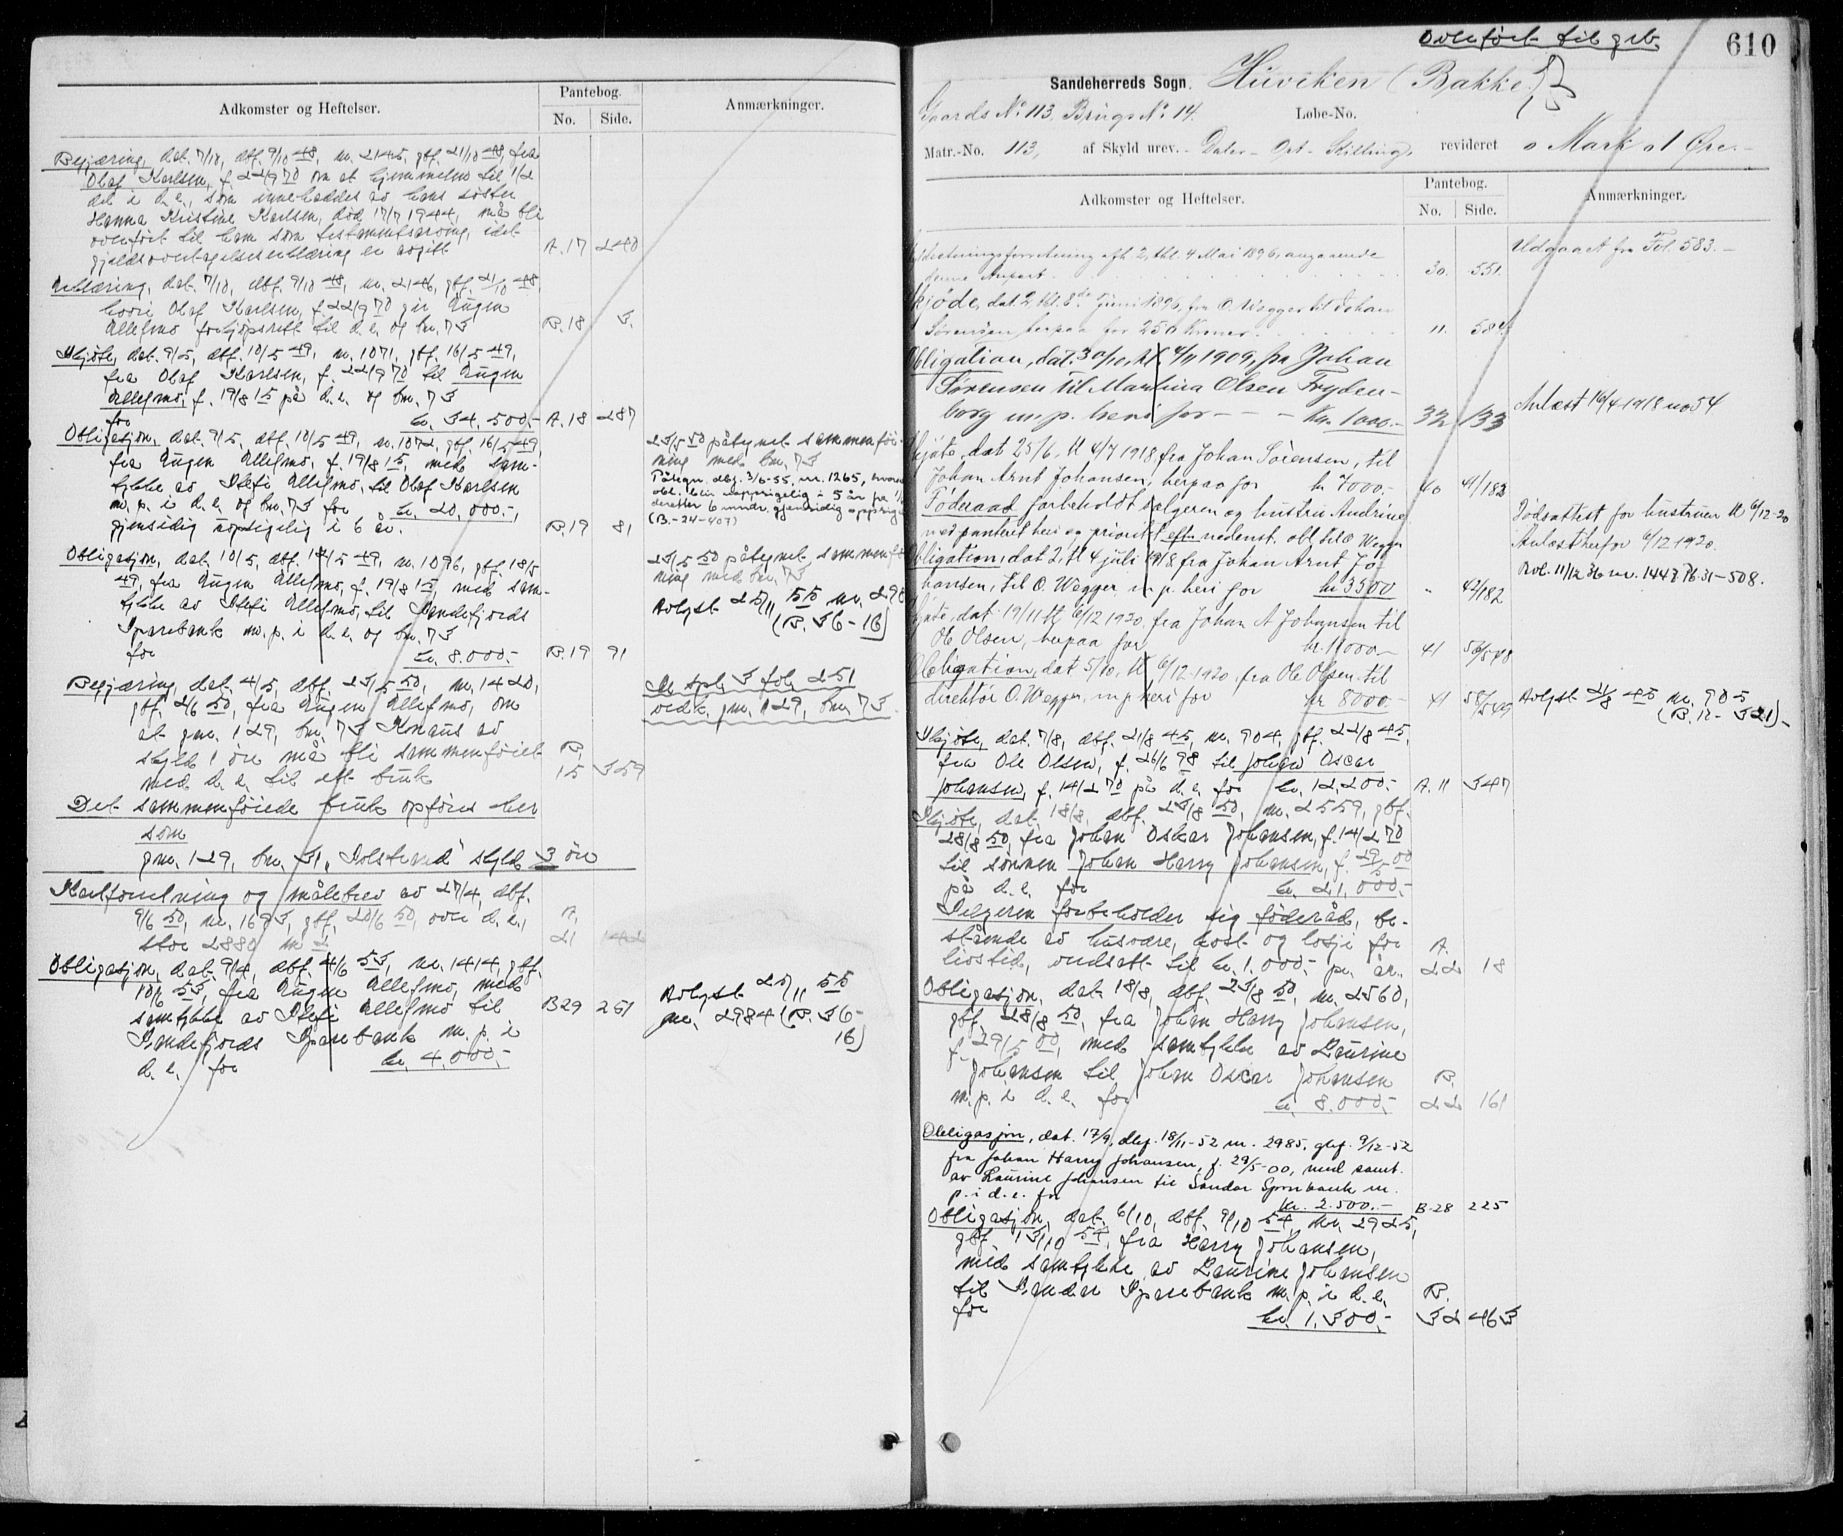 Adkomster og Heftelser.
Pantebog.
No. Side.
Anmærkninger.
Begjæring, dat. 7/10, dbf. 9/10 48, nr. 2145, gbf. 21/10 48, fra
Olaf Karlsen, f. 22/9 70 om at hjemmelen til 1/2
del i d.e., som innehaddes av hans søster
Hanna Kristine Karlsen, død 17/7 1944, må bli
overført til ham som testamentsarving, idet
gjeldsovertagelseserklæring er avgitt A.17 240
Erklæring, dat. 7/10, dbf. 9/10 48, nr. 2146, gbf. 21/10 48,
hvori Olaf Karlsen, f. 22/9 70 gir Augen
Allefmo forkjøpsrett til d.e. og bnr. 73 B.18 3.
Skjøte, dat. 9/5, dbf. 10/5 49, nr. 1071, gbf. 16/5 49,
fra Olaf Karlsen, f. 22/9 70 til Augen
Allefmo, f. 19/8 15 på d.e. og bnr. 73
for kr. 34.500,- A.18 287
Obligasjon, dat. 9/5, dbf. 10/5 49, nr. 1072, gbf. 16/5 49,
fra Augen Allefmo, f. 19/8 15, med sam-
tykke av Stefi Allefmo, til Olaf Karlsen
m.p. i d.e. og bnr. 73 for kr. 20.000,-,
gjensidig uopsigelig i 6 år. B.19 81
23/5 50 påtegnet sammenføi-
ning med bnr. 73
Påtegn. dbf. 3/6-55, nr. 1265,
obl. blir uoppsigelig i 5 år fra
deretter 6 mndr. gjensidig
(B.-24-407)
Obligasjon, dat. 10/5, dbf. 14/5 49, nr. 1096, gbf. 18/5
49, fra Augen Allefmo, f. 19/8 15, med sam-
tykke av Stefi Allefmo, til Sandefjords
Sparebank m.p. i d.e. og bnr. 73
for kr. 8.000.- B.19 91
23/5 50 påtegnet
ning med bnr. 73
Avlyst 25/11 55 nr. 298
(B. 36-16)
Begjæring, dat. 4/5, dbf. 23/5 50, nr. 1420,
gbf. 2/6 50, fra Augen Allefmo, om
at gnr. 129, bnr. 73 Knaus av
skyld 1 øre må bli sammenføiet B.
med d.e. til ett bruk 15 359
Se spl. 3 fol. 251
vedk. gnr. 129, bnr. 73.
Det sammenføiede bruk opføres her
som
gnr. 129, bnr. 31, "Solstrand" skyld 3 øre
Kartforretning og målebrev av 27/4, dbf.
9/6 50, nr. 1693, gbf. 20/6 50, over d.e., A.
stor 2880 m2 21
Obligasjon, dat. 9/4, dbf. 4/6 53, nr. 1414, gbf.
10/6 53, fra Augen Allefmo, med
samtykke av Stefi Allefmo til B29 251
Sandefjords Sparebank m.p. i
d.e. for kr. 4.000,-
Avlyst 25/11 55
nr. 2984 (B. 36-
16)
Overført til grb.
610
Sandeherreds Sogn. Hüviken (Bakke)
Gaards No. 113, Brugs No. 14. Løbe-No.
Matr.-No. 113, af Skyld urev. - Daler - Ort - Skilling, revideret 0 Mark 01 Øre.-
Adkomster og Heftelser.
Pantebog.
No. Side.
Anmærkninger.
Udskiftningsforretning afh. 2, thl. 4 Mai 1896, angaaende
denne Anpart 30. 551.
Udgaaet fra Fol. 583.-
Skjøde, dat. 2 thl. 8de Juni 1896, fra O. Wegger til Johan
Sørensen herpaa for 250 Kroner. 11. 584.
Obligation, dat. 30/10, thl. 4/11 1909, fra Johan
Sørensen til Martina Olsen Fryden-
borg m. p. heri for - - - Kr. 1000.- 32 133
Avlæst 16/4 1918 no 54
Skjøte, dat 25/6, tl 4/7 1918 fra Johan Sørensen, til
Johan Arnt Johansen, herpaa for kr 7000.- 40 41/182
Föderaad forbeholdt sælgeren og hustru Andrine
med panteret heri og prioritet eft. nedenst. obl. til O. Wegger
Dødsattest for hustruen tl 6/12-20
Avlæst herfor 6/12 1920.
Avl. 11/12 36 nr. 1447 Pb 31-508.
Obligation, dat 2, tl 4 juli 1918 fra Johan Arnt Jo
hansen, til O. Wegger m. p. heri for kr 3500 " 42/182
Skjøte, dat 19/11 tl 6/12 1920, fra Johan A Johansen til
Ole Olsen, herpaa for kr. 11000.- 41 56/548
Obligation, dat 5/10, tl 6/12 1920, fra Ole Olsen til
direktør O. Wegger, m. p. heri for kr 8000.- 41 58/549
Avlyst 21/8 45 nr. 905
(B. 12 - 321).-
Skjøte, dat. 7/8, dbf. 21/8 45, nr. 904, gbf. 22/8 45,
fra Ole Olsen, f. 26/6 98 til Johan Oscar
Johansen, f. 14/2 70 på d.e. for kr. 12.200.- A. 11 347
Skjøte, dat. 18/8, dbf. 23/8 50, nr. 2559, gbf.
28/8 50, fra Johan Oskar Johansen, f. 14/2 70
til sønnen Johan Harry Johansen, f. 29/5 00
på d.e. for kr. 21.000.-
Selgeren forbeholder sig føderåd, be-
stående av husvære, kost og losji for A.
livstid, verdsatt til kr. 1.000.- pr. år. 22 18
Obligasjon, dat. 18/8, dbf. 23/8 50, nr. 2560,
gbf. 28/8 50, fra Johan Harry Johansen,
f. 29/5 00, med samtykke av Laurine
Johansen til Johan Oscar Johansen B.
m.p. i d.e. for kr. 8.000.- 22 161
Obligasjon, dat. 17/9, dbf. 18/11-52 nr. 2985, gbf. 9/12-52
fra Johan Harry Johansen, f. 29/5-00, med samt.
av Laurine Johansen til Sandar Sparebank m.
p. i d.e. for kr. 2.500.- B-28 225
Obligasjon, dat. 6/10, dbf. 9/10 54, nr. 2925,
gbf. 13/10 54, fra Harry Johansen,
med samtykke av Laurine Johansen
til Sandar Sparebank m.p. i d.e. B.
for kr. 1.300.- 32 463